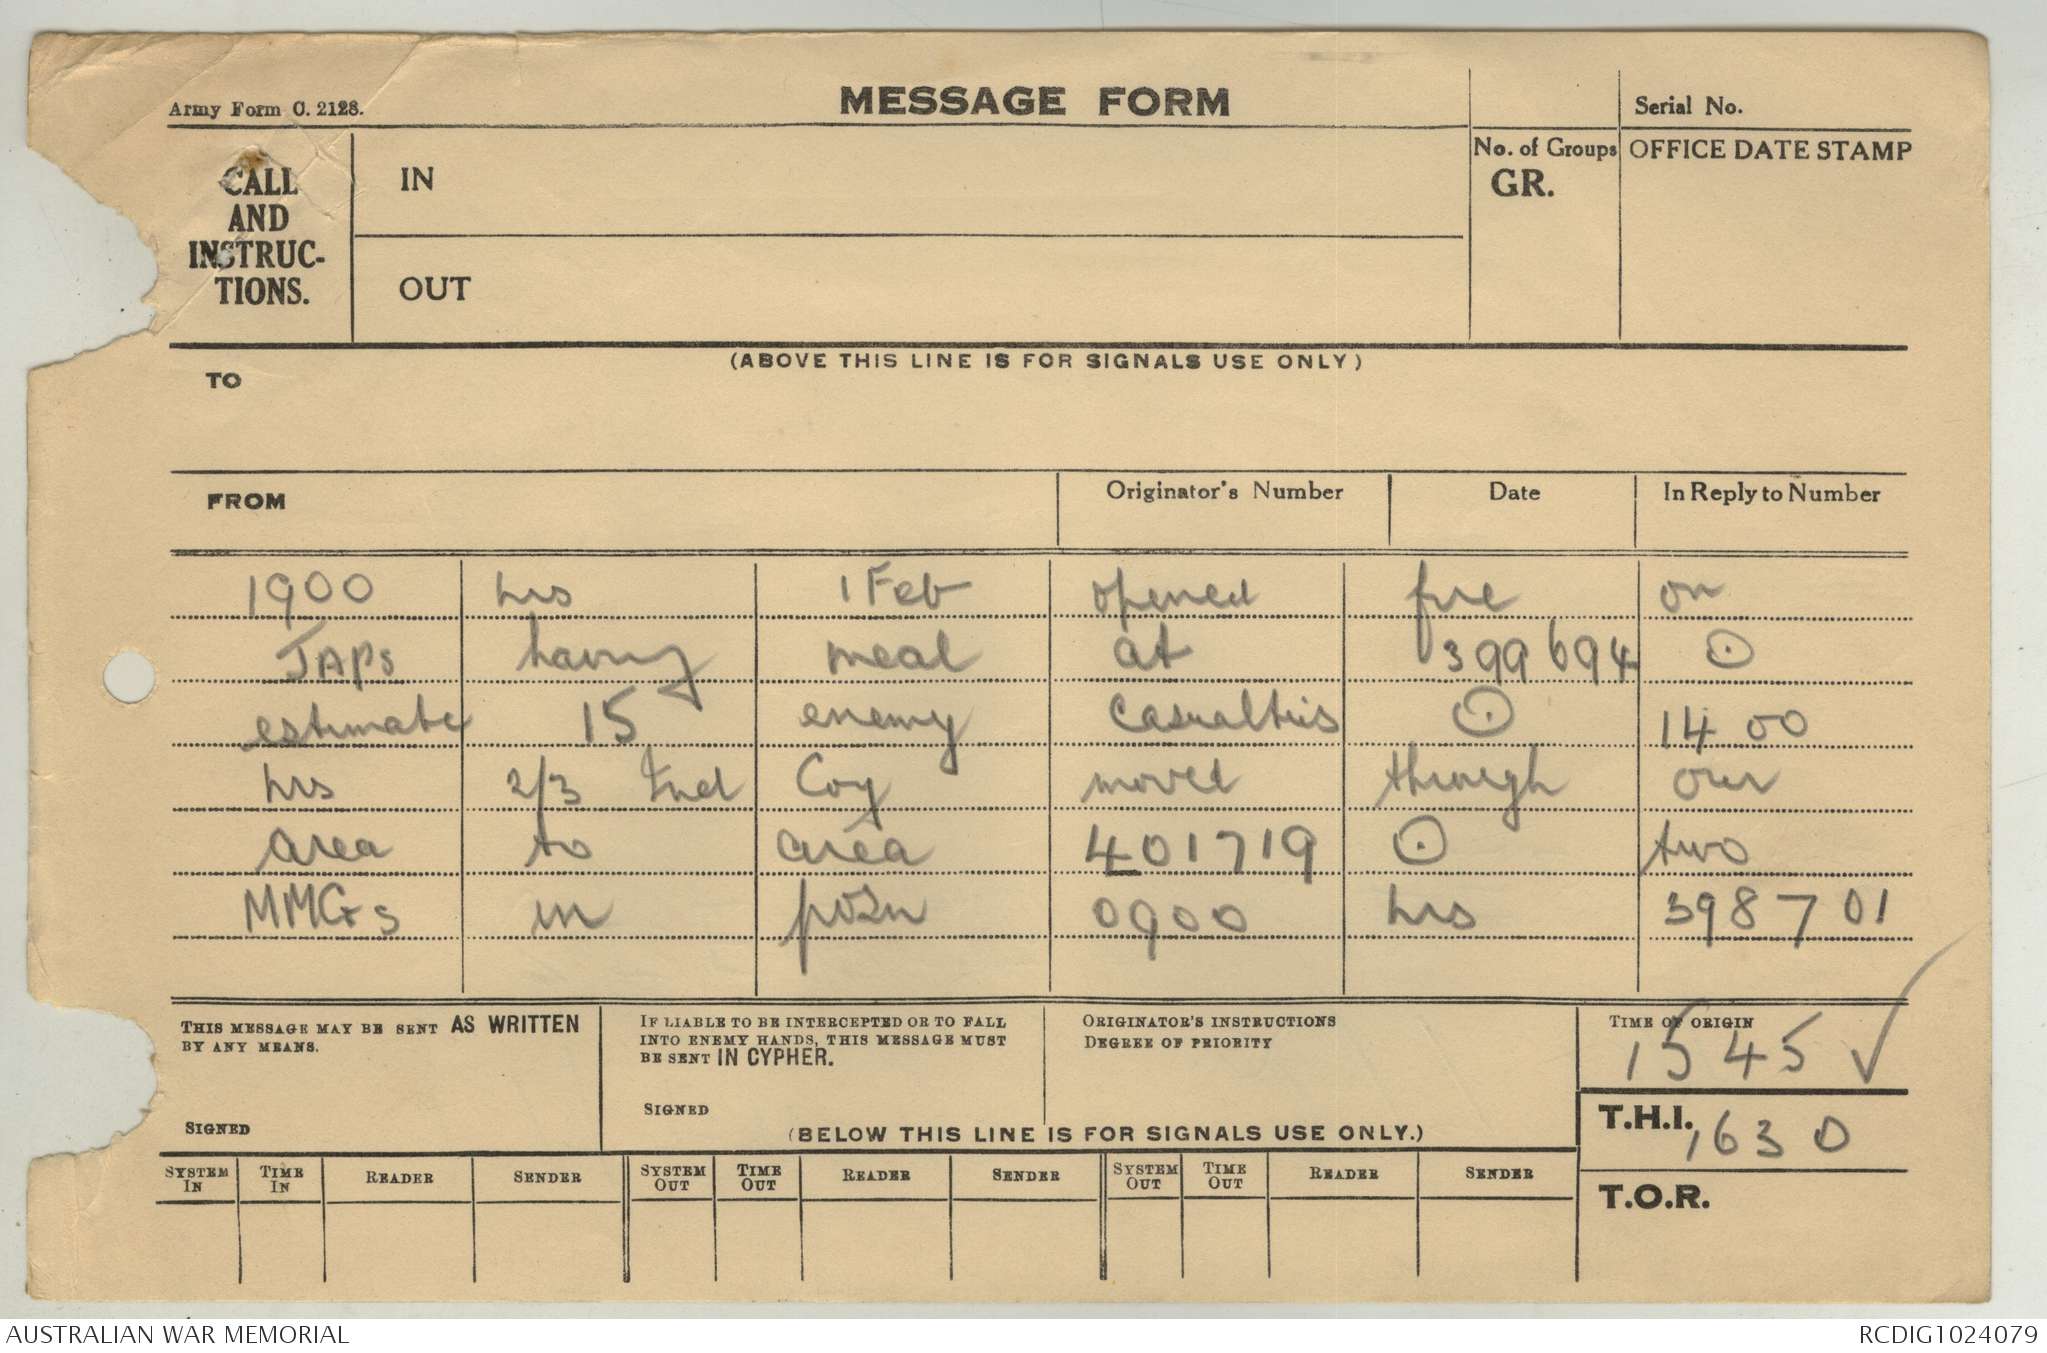 Army Form C. 2128.
MESSAGE FORM
Serial No.
CALL AND INSTRUC-TIONS.
IN
No. of Groups GR.
OFFICE DATE STAMP
OUT
(ABOVE THIS LINE IS FOR SIGNALS USE ONLY)
TO
FROM
Originator's Number
Date
In Reply to Number
1900 hrs 1 Feb opened fire on
JAPs having meal at 399694 ⊙
estimate 15 enemy casualties ⊙ 1400
hrs 2/3 Ind Coy moved through our
area to area 401719 ⊙ two
MMGs in posn 0900 hrs 398701
THIS MESSAGE MAY BE SENT AS WRITTEN
BY ANY MEANS.
SIGNED
IF LIABLE TO BE INTERCEPTED OR TO FALL
INTO ENEMY HANDS, THIS MESSAGE MUST
BE SENT IN CYPHER.
SIGNED
ORIGINATOR'S INSTRUCTIONS
DEGREE OF PRIORITY
TIME OF ORIGIN
1545 ✓
(BELOW THIS LINE IS FOR SIGNALS USE ONLY.)
T.H.I. 1630
SYSTEM IN TIME IN READER SENDER SYSTEM OUT TIME OUT READER SENDER SYSTEM OUT TIME OUT READER SENDER
T.O.R.
AUSTRALIAN WAR MEMORIAL
RCDIG1024079